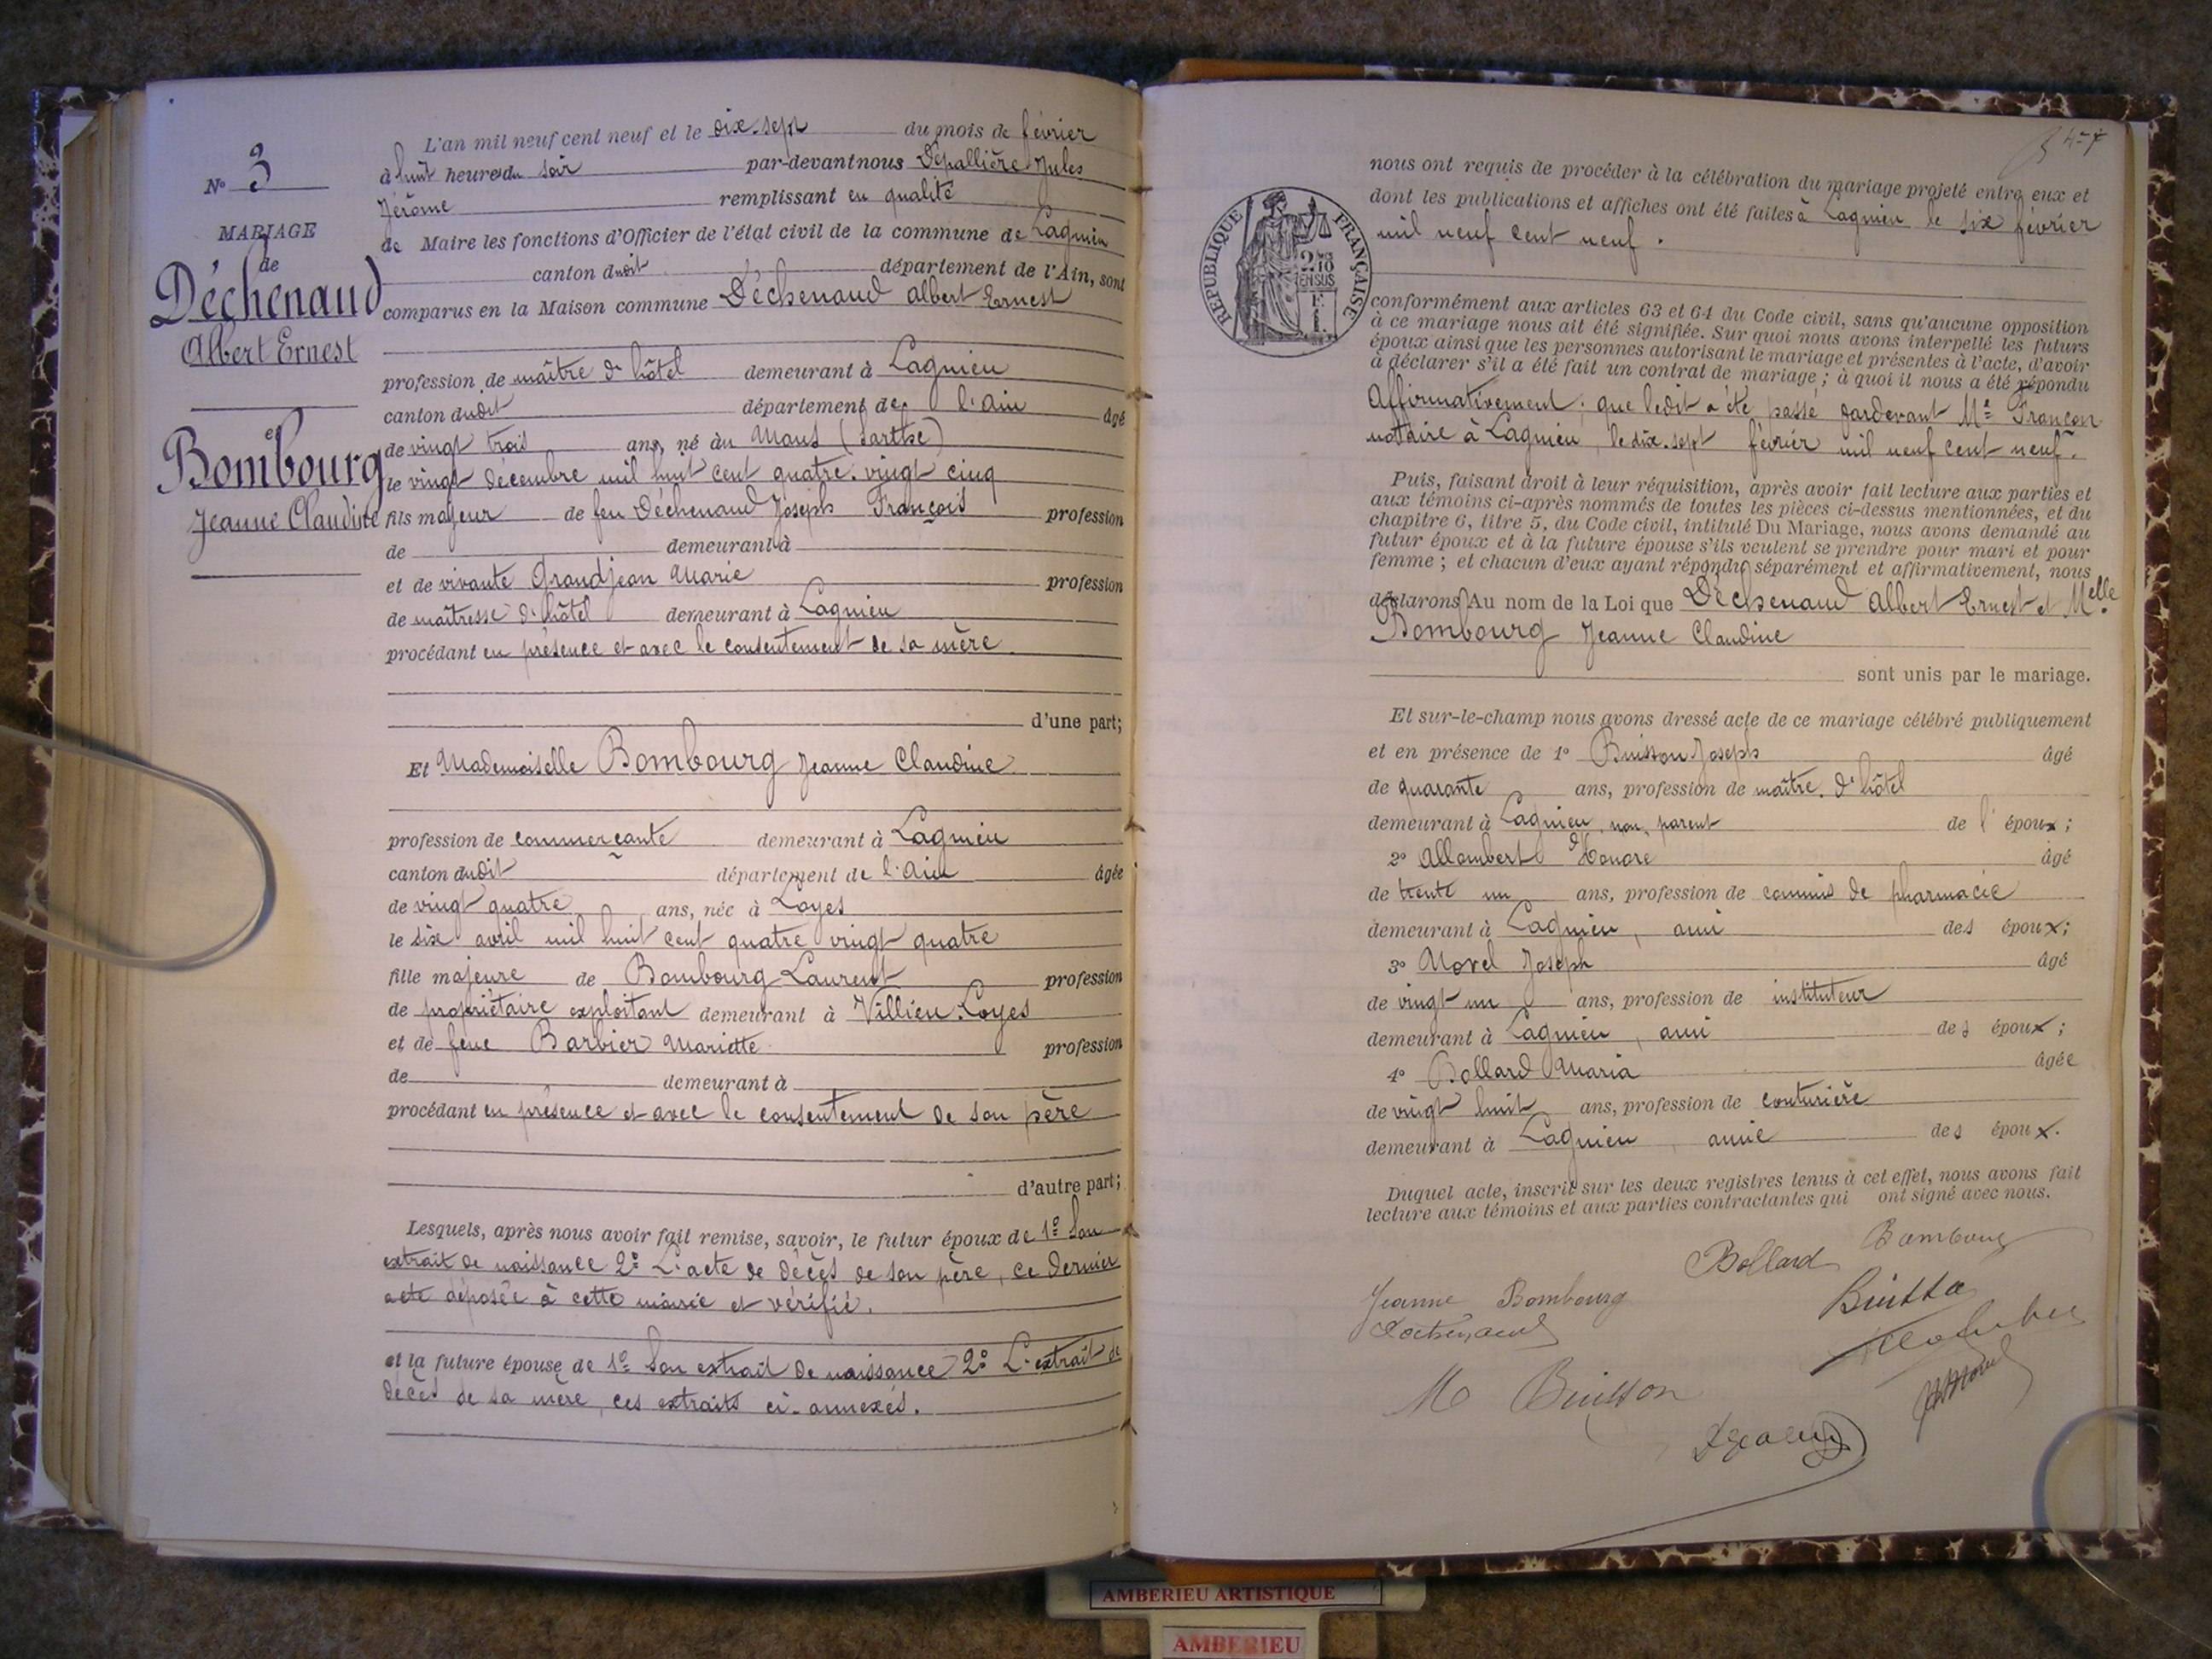 N° 3
MARIAGE
de
Déchenaud
Albert Ernest
et
Bombourg
Jeanne Claudine
L'an mil neuf cent neuf et le dix-sept du mois de février
à huit heures du soir par-devant nous Dépallière Jules
Jérôme remplissant en qualité
de Maire les fonctions d'Officier de l'état civil de la commune de Lagnieu
canton dudit département de l'Ain, sont
comparus en la Maison commune Déchenaud Albert Ernest
profession de maître d'hôtel demeurant à Lagnieu
canton dudit département de l'Ain âgé
de vingt trois ans, né au Mans (Sarthe)
le vingt décembre mil huit cent quatre-vingt cinq
fils majeur de feu Déchenaud Joseph François profession
de demeurant à
et de vivante Grandjean Marie profession
de maîtresse d'hôtel demeurant à Lagnieu
procédant en présence et avec le consentement de sa mère
d'une part;
Et Mademoiselle Bombourg Jeanne Claudine
profession de commerçante demeurant à Lagnieu
canton dudit département de l'Ain âgée
de vingt quatre ans, née à Loyes
le six avril mil huit cent quatre vingt quatre
fille majeure de Bombourg Laurent profession
de propriétaire exploitant demeurant à Villieu-Loyes
et de feue Barbier Mariette profession
de demeurant à
procédant en présence et avec le consentement de son père
d'autre part;
Lesquels, après nous avoir fait remise, savoir, le futur époux de 1° Son
extrait de naissance 2° L'acte de décès de son père, ce dernier
acte déposée à cette mairie et vérifié.
et la future épouse de 1° Son extrait de naissance 2° L'extrait de
décès de sa mère, ces extraits ci-annexés.
RÉPUBLIQUE FRANÇAISE
nous ont requis de procéder à la célébration du mariage projeté entre eux et
dont les publications et affiches ont été faites à Lagnieu le six février
mil neuf cent neuf.
conformément aux articles 63 et 64 du Code civil, sans qu'aucune opposition
à ce mariage nous ait été signifiée. Sur quoi nous avons interpellé les futurs
époux ainsi que les personnes autorisant le mariage et présentes à l'acte, d'avoir
à déclarer s'il a été fait un contrat de mariage; à quoi il nous a été répondu
Affirmativement; que ledit a été passé pardevant Me Françon
notaire à Lagnieu, le dix-sept février mil neuf cent neuf.
Puis, faisant droit à leur réquisition, après avoir fait lecture aux parties et
aux témoins ci-après nommés de toutes les pièces ci-dessus mentionnées, et du
chapitre 6, titre 5, du Code civil, intitulé Du Mariage, nous avons demandé au
futur époux et à la future épouse s'ils veulent se prendre pour mari et pour
femme; et chacun d'eux ayant répondu séparément et affirmativement, nous
déclarons Au nom de la Loi que Déchenaud Albert Ernest et Melle
Bombourg Jeanne Claudine
sont unis par le mariage.
Et sur-le-champ nous avons dressé acte de ce mariage célébré publiquement
et en présence de 1° Buisson Joseph âgé
de quarante ans, profession de maître d'hôtel
demeurant à Lagnieu, non parent de l'époux;
2° Allombert Honoré âgé
de trente un ans, profession de commis de pharmacie
demeurant à Lagnieu, ami des époux;
3° Morel Joseph âgé
de vingt un ans, profession de instituteur
demeurant à Lagnieu, ami des époux;
4° Bollard Maria âgée
de vingt huit ans, profession de couturière
demeurant à Lagnieu, amie des époux.
Duquel acte, inscrit sur les deux registres tenus à cet effet, nous avons fait
lecture aux témoins et aux parties contractantes qui ont signé avec nous.
Bollard Bombourg
Jeanne Bombourg
M Buisson
AMBERIEU ARTISTIQUE
AMBERIEU